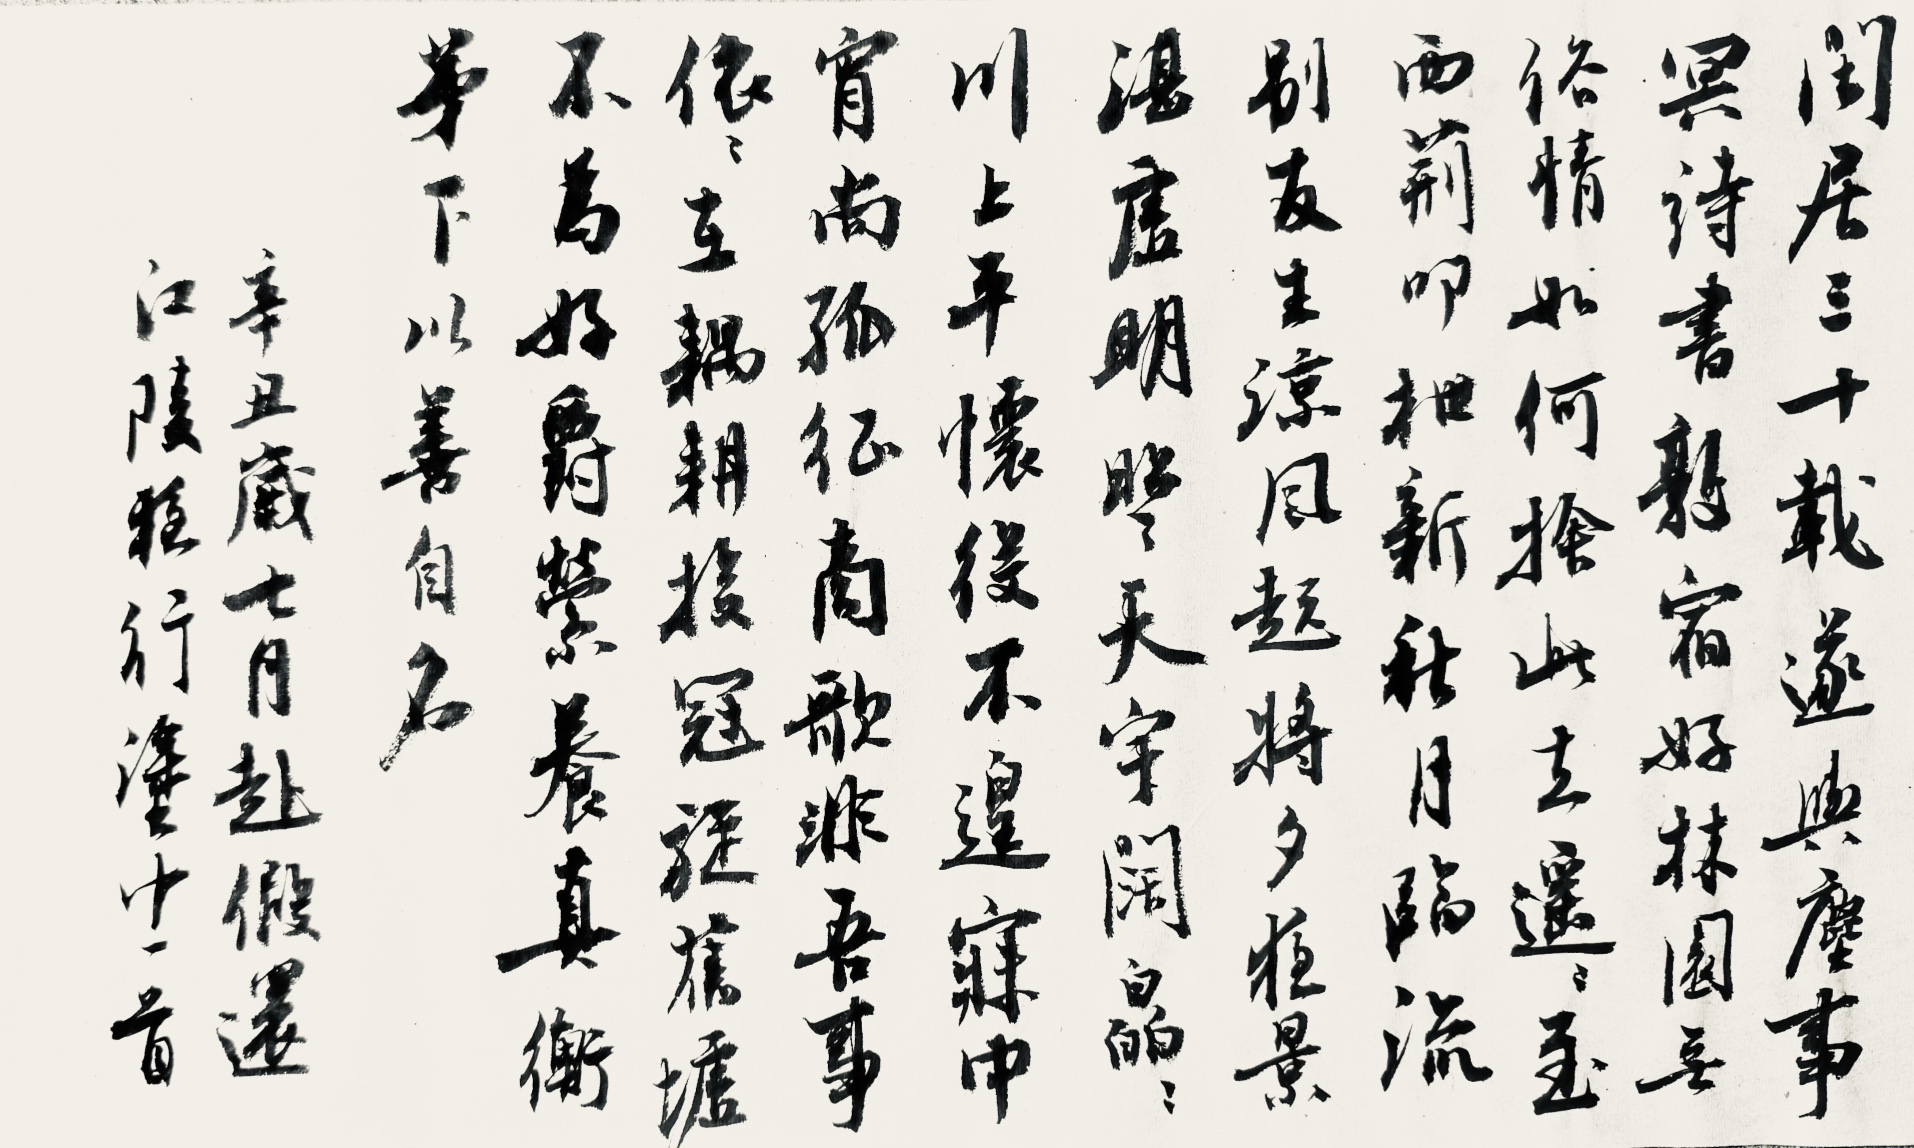 閑居三十載遂與塵事
冥詩書敦宿好林園無
俗情如何捨此去遥〻至
西荆叩枻新秋月臨流
别友生涼風起將夕夜景
湛虚明昭〻天宇闊皛〻
川上平懷役不遑寐中
宵尚孤征商歌非吾事
依〻在耦耕投冠旋舊墟
不為好爵縈養真衡
茅下以善自名
辛丑歲七月赴假還
江陵夜行塗中一首